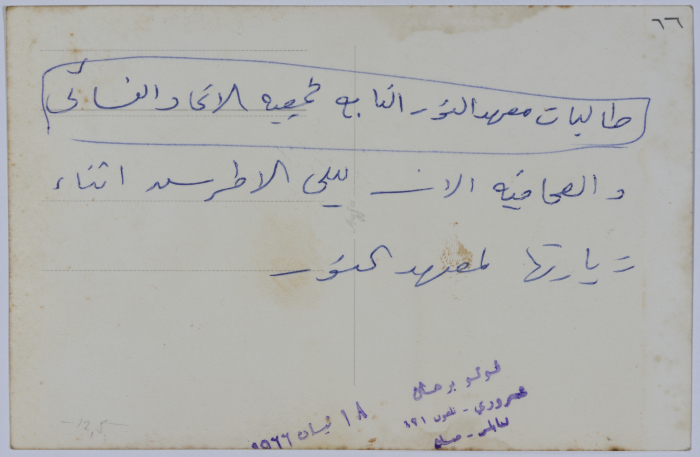 ٦٦
طالبات معهد النور التابع لجمعية الاتحاد النسائي
والصحافية الانسه ليلى الاطرش اثناء
زيارتها لمعهد النور
فوتو برهان
ضروري - تلفون ٨٩١
نابلس - عمان
١٨ نيسان ١٩٦٦
12,5